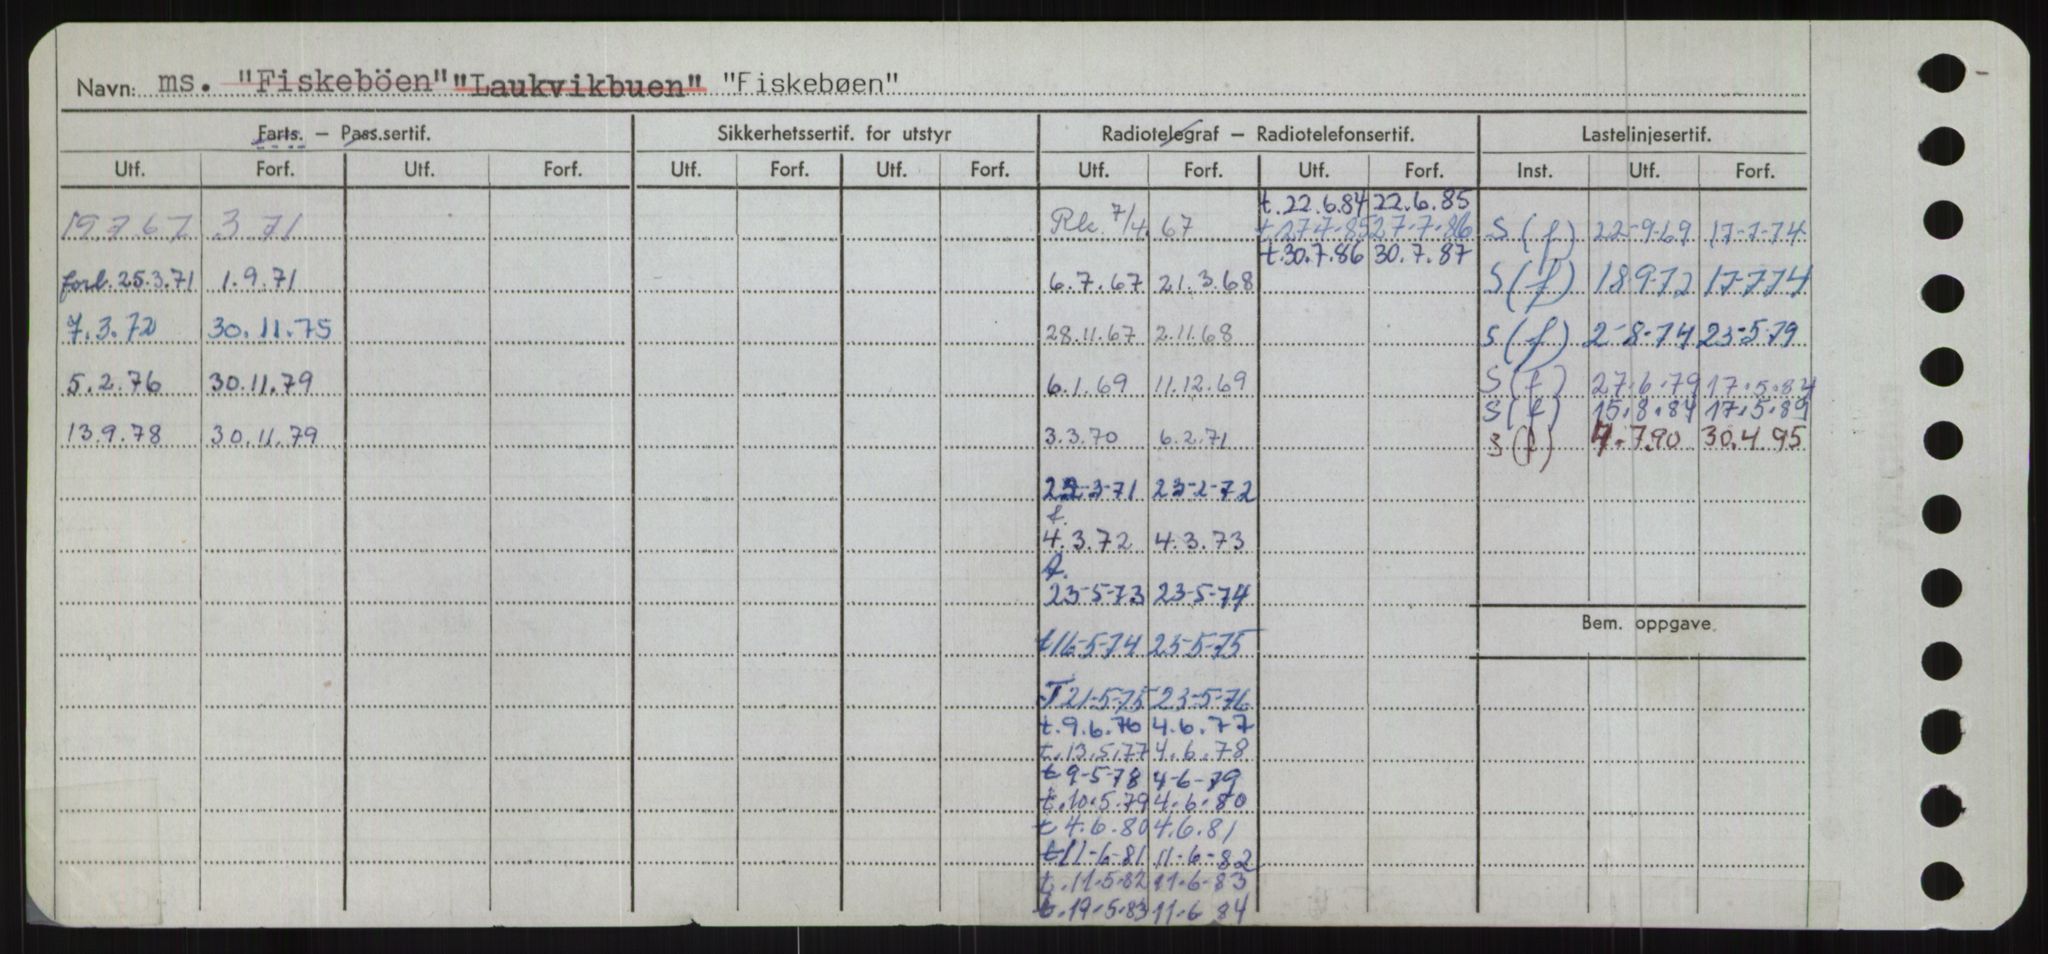 Navn: ms. "Fiskeböen" "Laukvikbuen" "Fiskebøen"
Farts. – Pass.sertif. Sikkerhetssertif. for utstyr Radiotelegraf – Radiotelefonsertif. Lastelinjesertif.
Utf. Forf. Utf. Forf. Utf. Forf. Utf. Forf. Utf. Forf. Utf. Forf. Inst. Utf. Forf.
t. 22.6.84 22.6.85
19.7.67 3.71 Rk. 7/4.67 t 27-7-85 27-7-86 S(f) 22-9-69 17-7-74
t.30.7.86 30.7.87
forl. 25.3.71 1.9.71 6.7.67 21.3.68 S(f) 18.9.72 17-7-74
7.3.72 30.11.75 28.11.67 2.11.68 S(f) 2-8-74 23-5-79
5.2.76 30.11.79 6.1.69 11.12.69 S(f) 27.6.79 17.5.84
S(f) 15.8.84 17.5.89
13.9.78 30.11.79 3.3.70 6.2.71 S(f) 4.7.90 30.4.95
22-3-71 23-2-72
t.
4.3.72 4.3.73
t.
23-5-73 23-5-74
t 16-5-74 23-5-75
Bem. oppgave
T 21-5-75 23-5-76
t. 9.6.76 4.6.77
t. 13.5.77 4.6.78
t 9-5-78 4-6-79
t. 10.5.79 4.6.80
t 4.6.80 4.6.81
t 11-6-81 11-6-82
t. 11-5-82 11-6-83
t. 19.5.83 11.6 84